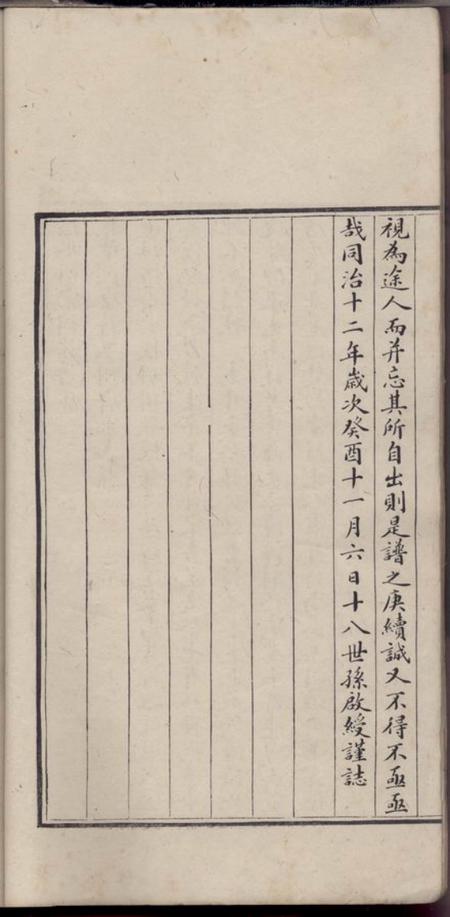 視為途人而并忘其所自出則是譜之庚續誠又不得不亟亟
哉同治十二年歲次癸酉十一月六日十八世孫啟綬謹誌